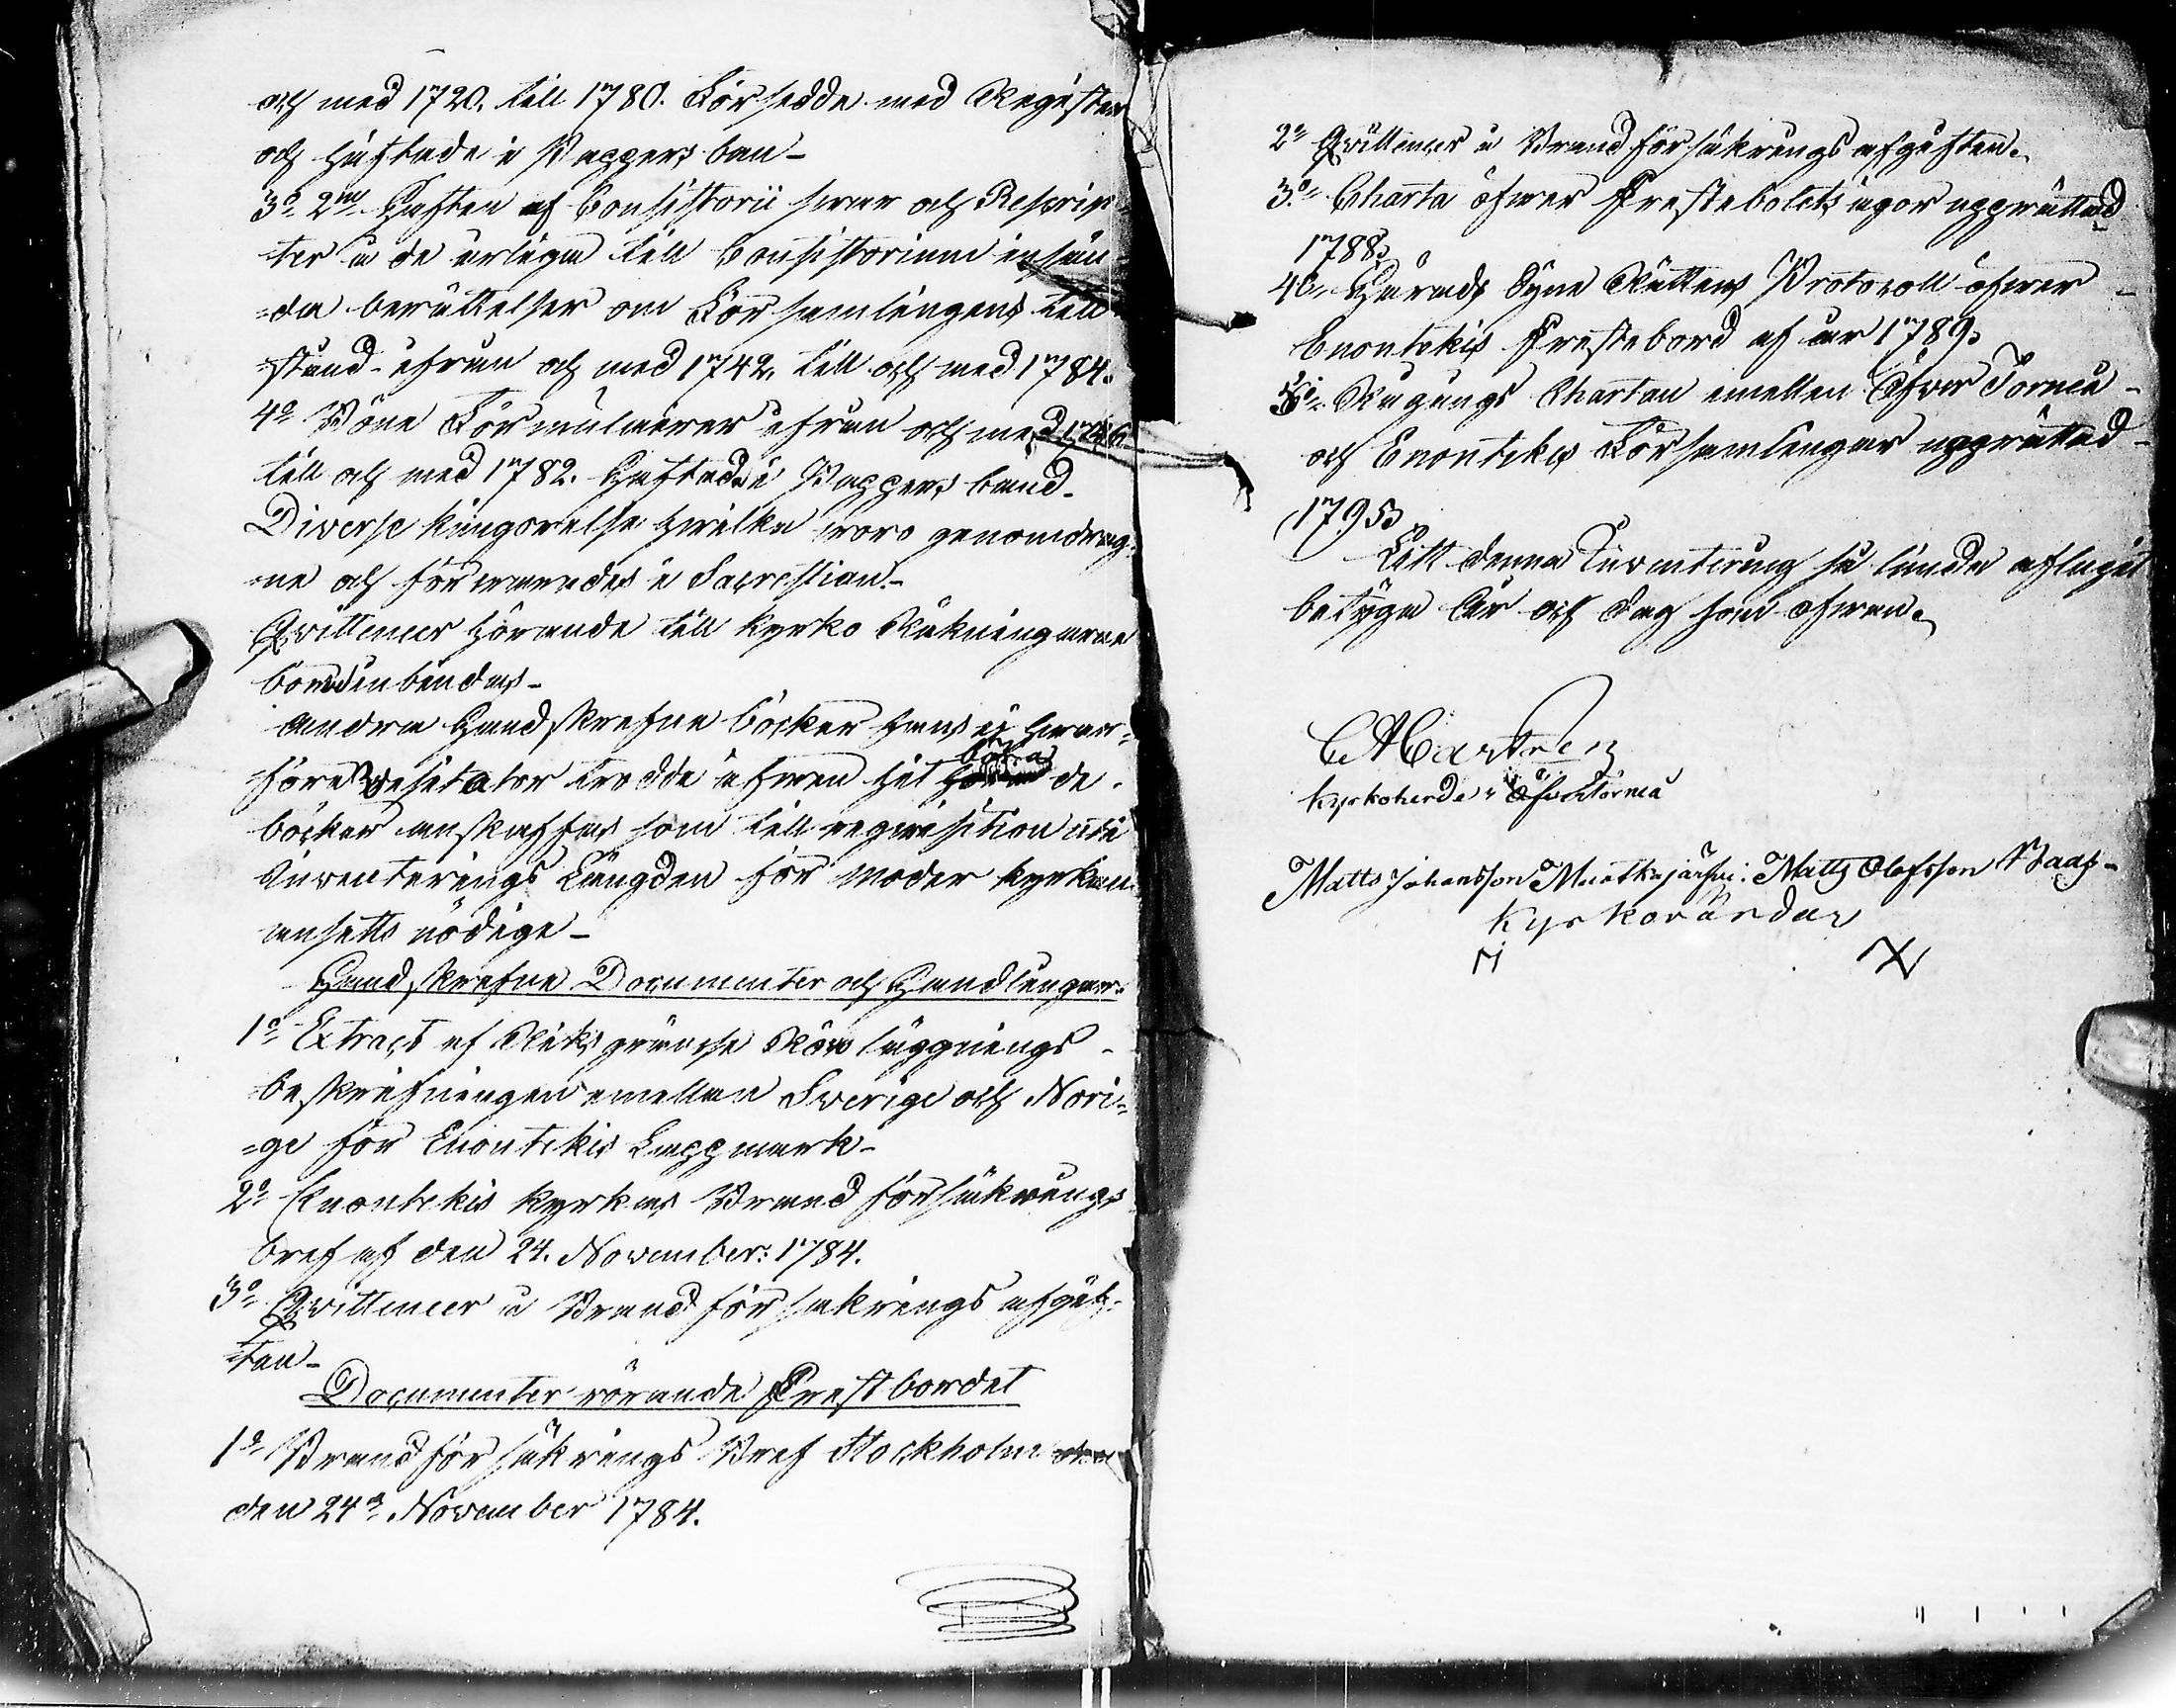 och med 1720. till 1780. Försedde med Register
och häftade i Pappers ban-
3o 2ne Häften af Consistorii swar och Rescrip-
ter å de årliga till Consistorium insän-
=da berättelser om Församlingens till
=stånd ifrån och med 1742. till och med 1784.
4o Böne Formulairer ifrån och med
till och med 1782. Häftade i Pappers band.
Diverse kungörelser hwilka woro genomdrag-
ne och förwarades i Sacrestian-
Qvittencer hörande till kyrko Räkningarne
bordsinbindas-
Andra Handskrefne böcker fans ej hwar-
före Visitator trodde äfwen hit böra de
böcker anskaffas som till reqvisition uti
Inventerings Längden för Moder kyrkan
ansetts nödige-
Handskrefne Documenter och Handlingar.
1o Extract af Riksgränse Rörläggnings-
beskrifningen emellan Swerige och Nori=
=ge för Enontekis Lappmark-
2o Enontekis kyrkas Brand försäkrings
bref af den 24. November: 1784.
3o Qvittencer å Brand försäkrings afgif-
=ten-
Documenter rörande Prestbordet
1o Brandförsäkrings Bref Stockholm
den 24de November 1784.
2o Qvittencer å Brand försäkrings afgiften.
3o Charta öfwer Prestebolets ägor upprättad
1788.
4o Härads Syne Rättens Protocoll öfwer
Enontekis Prestebord af år 1789.
5o Rågångs Chartan emellan Öfver Torneå
och Enontekis Församlingar upprättad
1795
Till denna Inventering så lunda aflagit
betyga År och dag som ofwan.
Kyrkoherde i Öfver Torneå
Matts Johansson Muotkajärfvi: Matts Olofsson
Kyrkovärdar